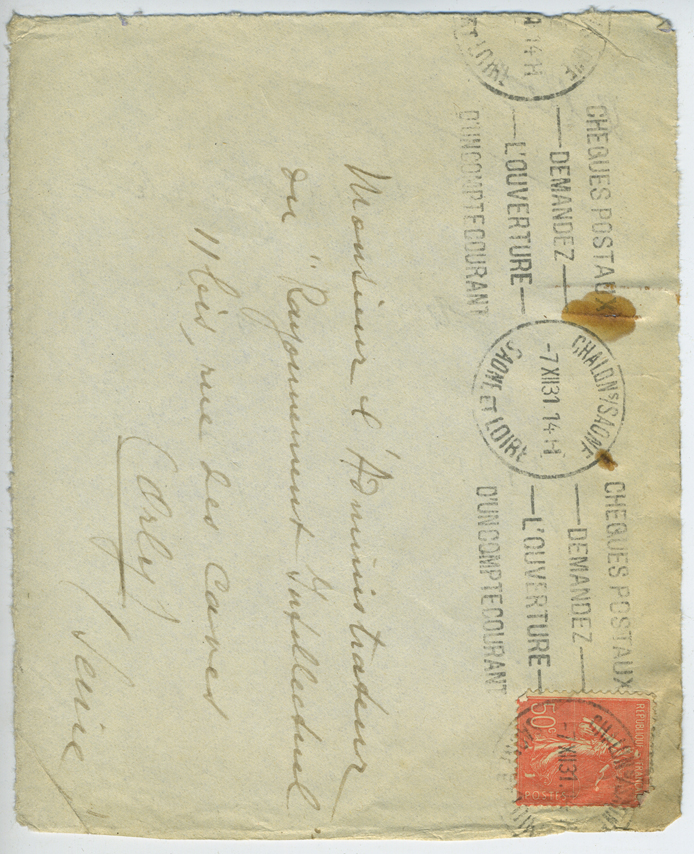 A 14-H
ET LOIRE
CHEQUES POSTAUX
— DEMANDEZ —
— L'OUVERTURE —
D'UN COMPTE COURANT
CHALON S/ SAONE
-7 XII 31 14-H
SAONE ET LOIRE
CHEQUES POSTAUX
— DEMANDEZ —
— L'OUVERTURE —
D'UN COMPTE COURANT
CHALON S/ SAONE
-7 XII 31
50c
POSTES
Monsieur l'Administrateur
du "Rayonnement Intellectuel
11 bis, rue des Caves
Orly / Seine